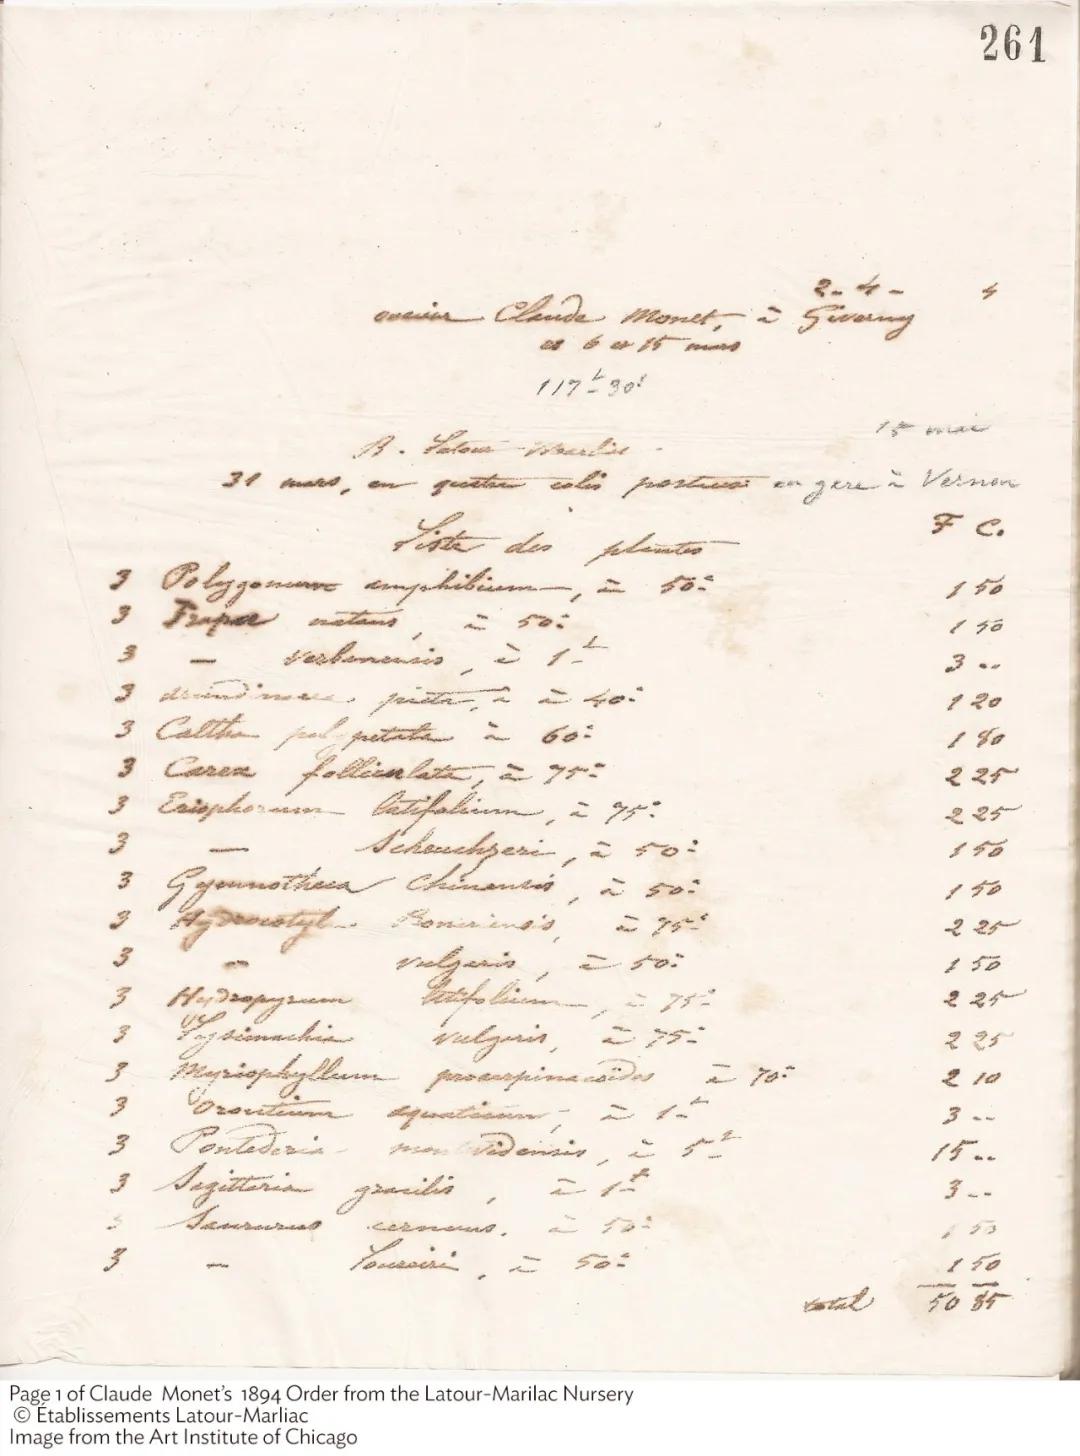 261
2-4- 4
Claude Monet, à Giverny
et 6 et 15 mars
117f 30c
15 mai
B. Latour-Marliac
31 mars, en quatre colis postaux en gare à Vernon
F C.
Liste des plantes
3 Polygonum amphibium, à 50c 1 50
3 Trapa natans, à 50c 1 50
3 — verbanensis, à 1f 3 ..
3 picta, à 40c 1 20
3 Caltha polypetala à 60c 1 80
3 Carex folliculata, à 75c 2 25
3 Eriophorum latifolium, à 75c 2 25
3 — Scheuchzeri, à 50c 1 50
3 Gymnotheca Chinensis, à 50c 1 50
3 Hydrocotyle Bonariensis, à 75c 2 25
3 — vulgaris, à 50c 1 50
3 Hydropyrum latifolium, à 75c 2 25
3 Lysimachia vulgaris, à 75c 2 25
3 Myriophyllum proserpinacoïdes à 70c 2 10
3 Orontium aquaticum, à 1f 3 ..
3 Pontederia montevidensis, à 5f 15 ..
3 Sagittaria gracilis, à 1f 3 ..
3 Saururus cernuus, à 50c 1 50
3 — Loureiri, à 50c 1 50
total 50 85
Page 1 of Claude Monet's 1894 Order from the Latour-Marilac Nursery
© Établissements Latour-Marliac
Image from the Art Institute of Chicago